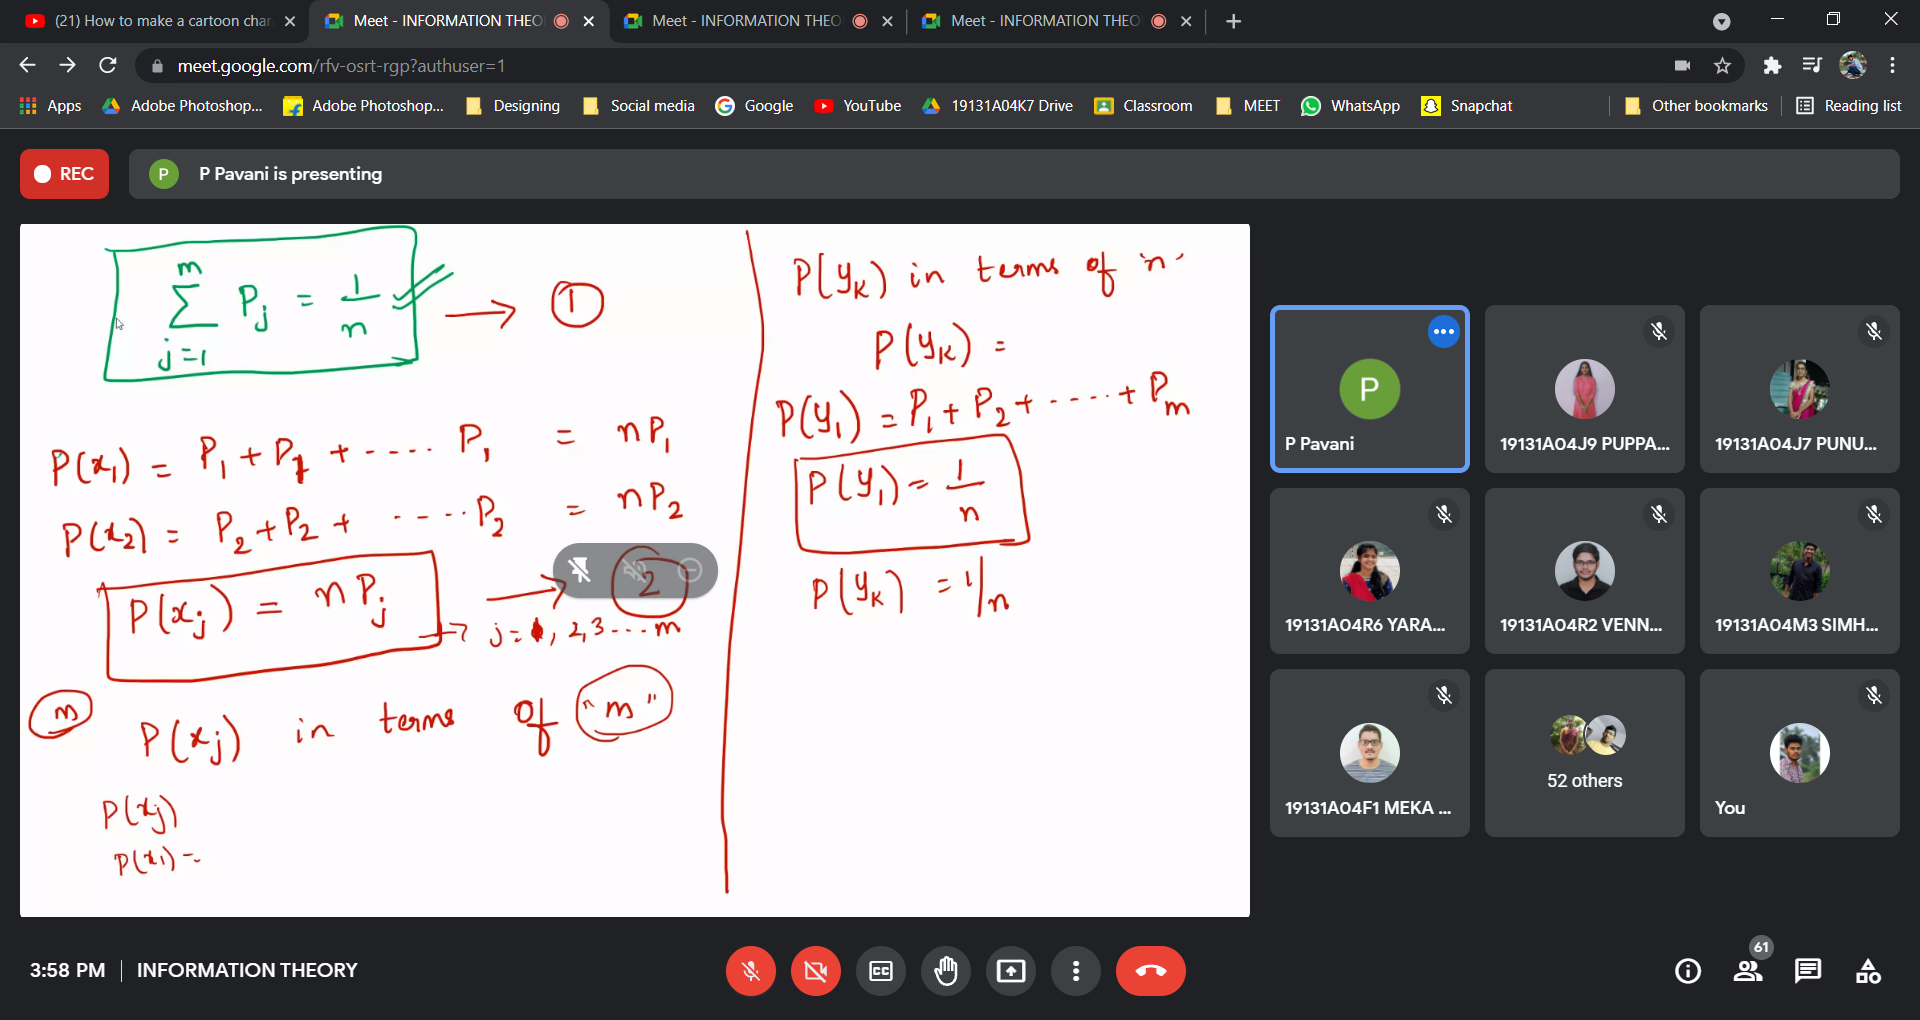 (21) How to make a cartoon char
Meet - INFORMATION THEO
Meet - INFORMATION THEO
Meet - INFORMATION THEO
meet.google.com/rfv-osrt-rgp?authuser=1
Apps
Adobe Photoshop...
Adobe Photoshop...
Designing
Social media
Google
YouTube
19131A04K7 Drive
Classroom
MEET
WhatsApp
Snapchat
Other bookmarks
Reading list
REC
P
P Pavani is presenting
m
∑ Pj = 1/n → ①
j=1
P(x₁) = P₁ + P₁ + ---- P₁ = nP₁
P(x₂) = P₂ + P₂ + ---- P₂ = nP₂
P(xj) = nPj → 2
→ j = 1, 2, 3 --- m
m
P(xj) in terms of "m"
P(xj)
P(x₁) =
P(yK) in terms of n.
P(yK) =
P(y₁) = P₁ + P₂ + ---- + Pm
P(y₁) = 1/n
P(yK) = 1/n
P
P Pavani
19131A04J9 PUPPA...
19131A04J7 PUNU...
19131A04R6 YARA...
19131A04R2 VENN...
19131A04M3 SIMH...
19131A04F1 MEKA ...
52 others
You
3:58 PM
INFORMATION THEORY
CC
61